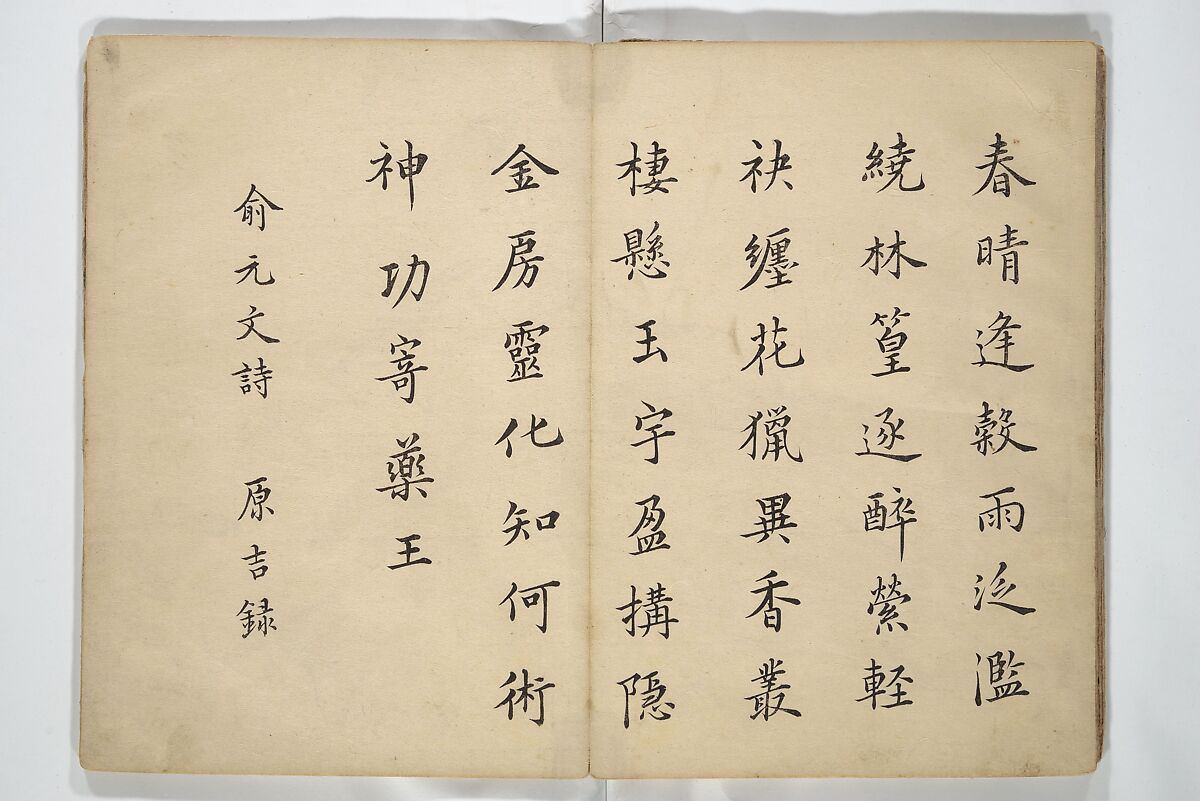 春晴逢穀雨泛濫
繞林篁逐醉縈軽
袂纏花獵異香叢
棲懸玉宇盈搆隠
金房靈化知何術
神功寄藥王
俞元文詩 原吉録